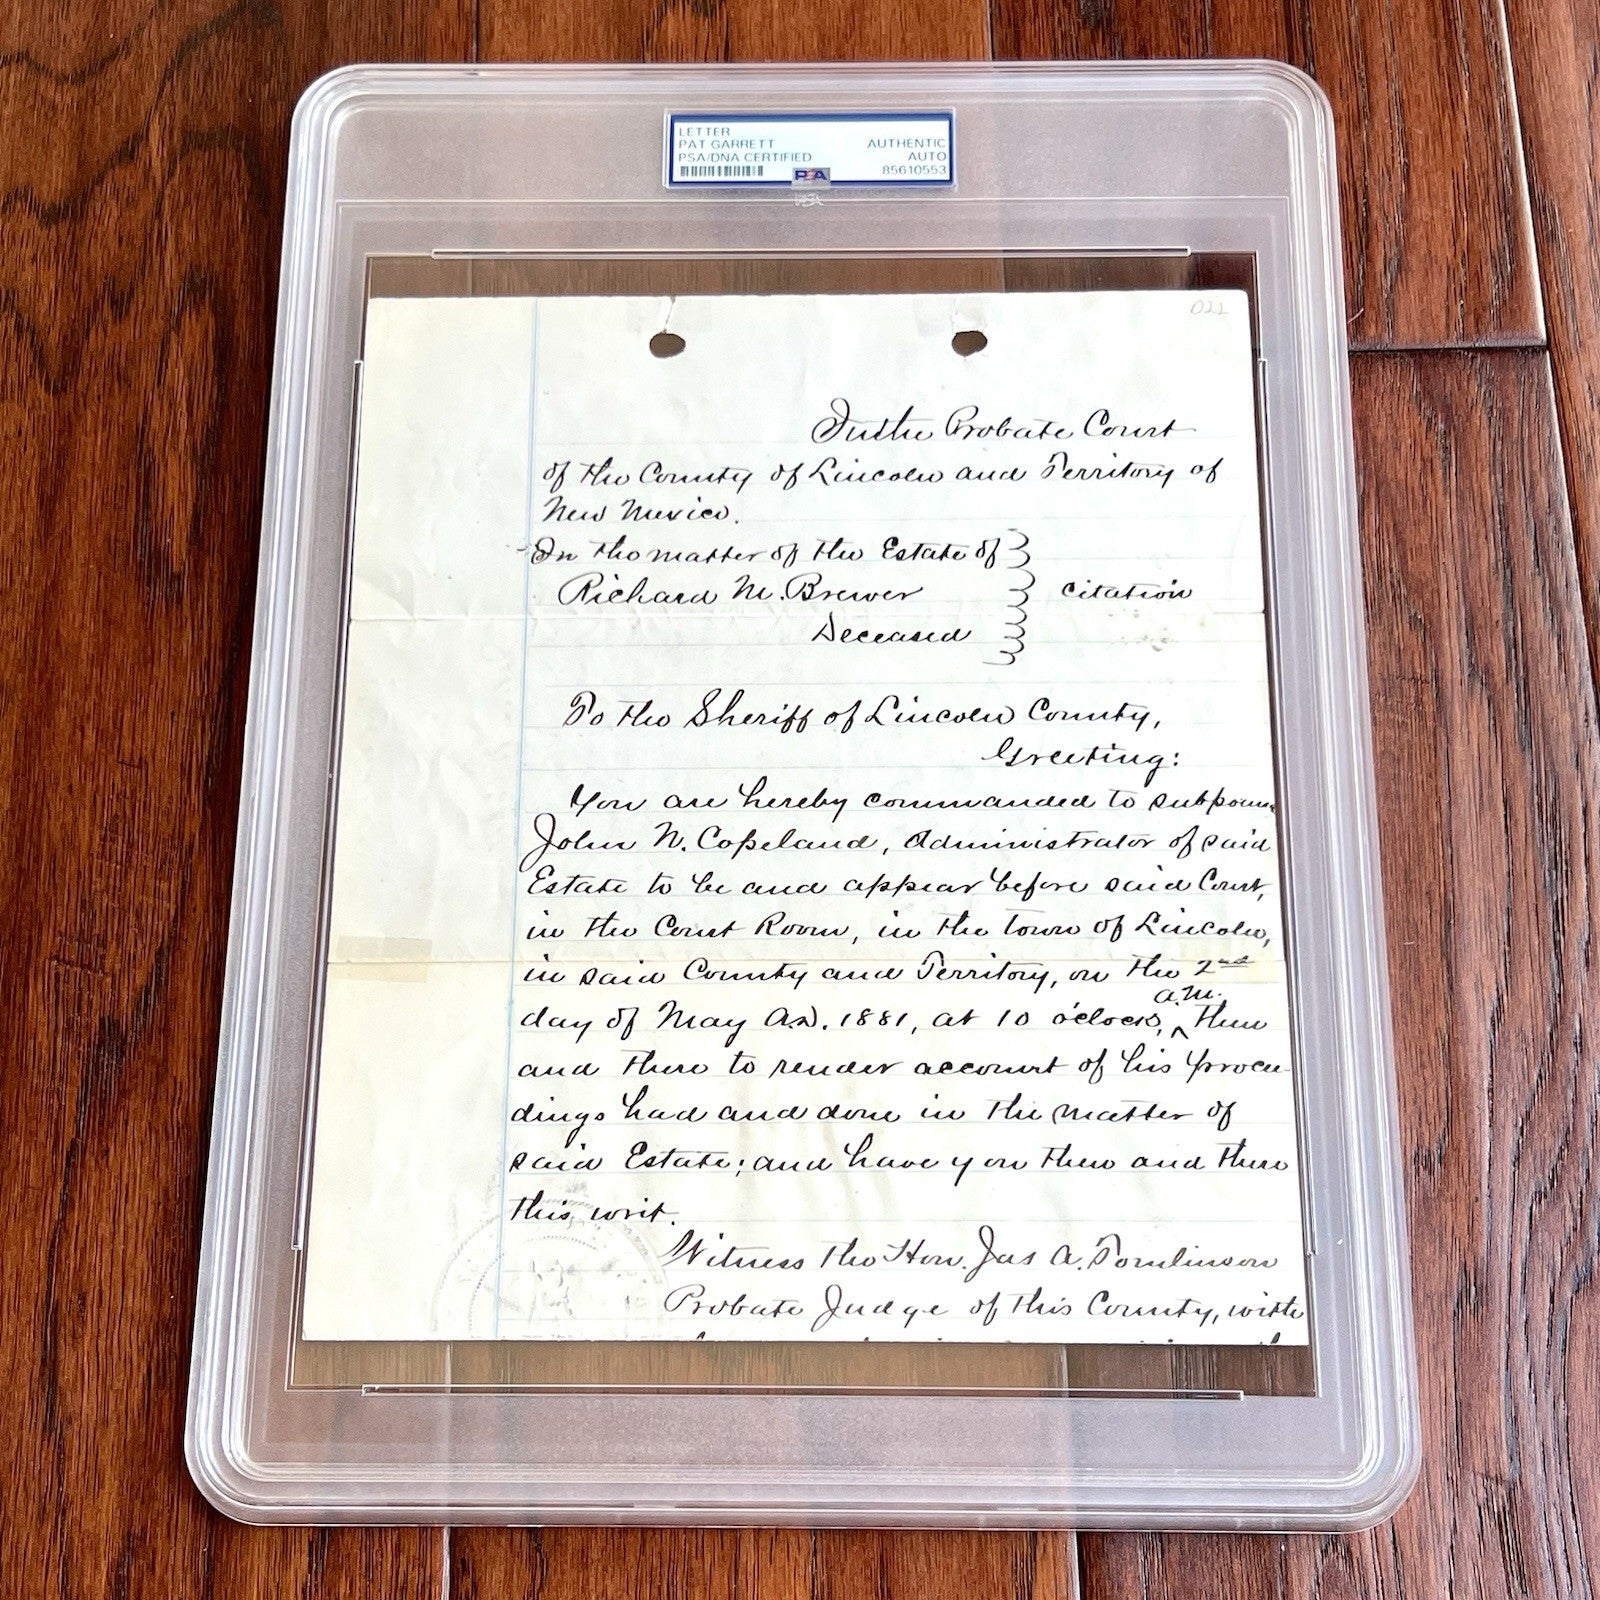 LETTER
PAT GARRETT
PSA/DNA CERTIFIED
AUTHENTIC
AUTO
85610553
PSA
022
In the Probate Court
of the County of Lincoln and Territory of
New Mexico.
In the matter of the Estate of
Richard M. Brewer
Deceased
citation
To the Sheriff of Lincoln County,
Greeting:
You are hereby commanded to subpoena
John N. Copeland, Administrator of said
Estate to be and appear before said Court,
in the Court Room, in the town of Lincoln,
in said County and Territory, on the 2nd
day of May A.D. 1881, at 10 o'clock, a.m. then
and there to render account of his procee-
dings had and done in the matter of
said Estate; and have you then and there
this writ.
Witness the Hon. Jas A. Tomlinson
Probate Judge of this County, with